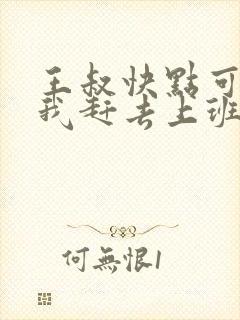 王叔快點可
我赶去上班
何無恨1